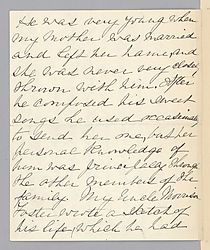 He was very young when
my Mother was married
and left her home, and
she was never very closely
thrown with him. After
he composed his sweet
songs he used occasionally
to send her one, but her
personal knowledge of
him was principally through
the other members of the
family. My Uncle Morrison
Foster wrote a sketch of
his life, which he had